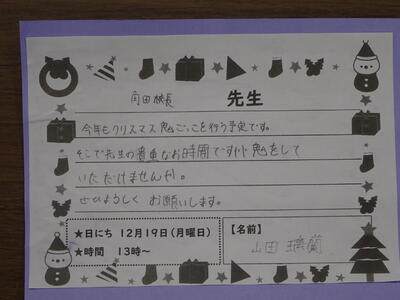 角田校長 先生
今年もクリスマス鬼ごっこを行う予定です。
そこで先生の貴重なお時間ですが鬼をして
いただけませんか。
ぜひよろしくお願いします。
★日にち 12月19日(月曜日)
★時間 13時～
【名前】
山田 璃蘭